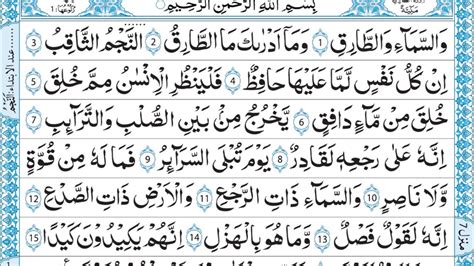 بِسْمِ اللهِ الرَّحْمٰنِ الرَّحِيْمِ
وَالسَّمَآءِ وَالطَّارِقِ ١ وَمَآ اَدْرٰىكَ مَا الطَّارِقُ ٢ النَّجْمُ الثَّاقِبُ ٣
اِنْ كُلُّ نَفْسٍ لَّمَّا عَلَيْهَا حَافِظٌ ٤ فَلْيَنْظُرِ الْاِنْسَانُ مِمَّ خُلِقَ ٥
خُلِقَ مِنْ مَّآءٍ دَافِقٍ ٦ يَّخْرُجُ مِنْۢ بَيْنِ الصُّلْبِ وَالتَّرَآئِبِ ٧
اِنَّهٗ عَلٰى رَجْعِهٖ لَقَادِرٌ ٨ يَوْمَ تُبْلَى السَّرَآئِرُ ٩ فَمَا لَهٗ مِنْ قُوَّةٍ
وَّلَا نَاصِرٍ 10 وَالسَّمَآءِ ذَاتِ الرَّجْعِ 11 وَالْاَرْضِ ذَاتِ الصَّدْعِ 12
اِنَّهٗ لَقَوْلٌ فَصْلٌ 13 وَّمَا هُوَ بِالْهَزْلِ 14 اِنَّهُمْ يَكِيْدُوْنَ كَيْدًا 15